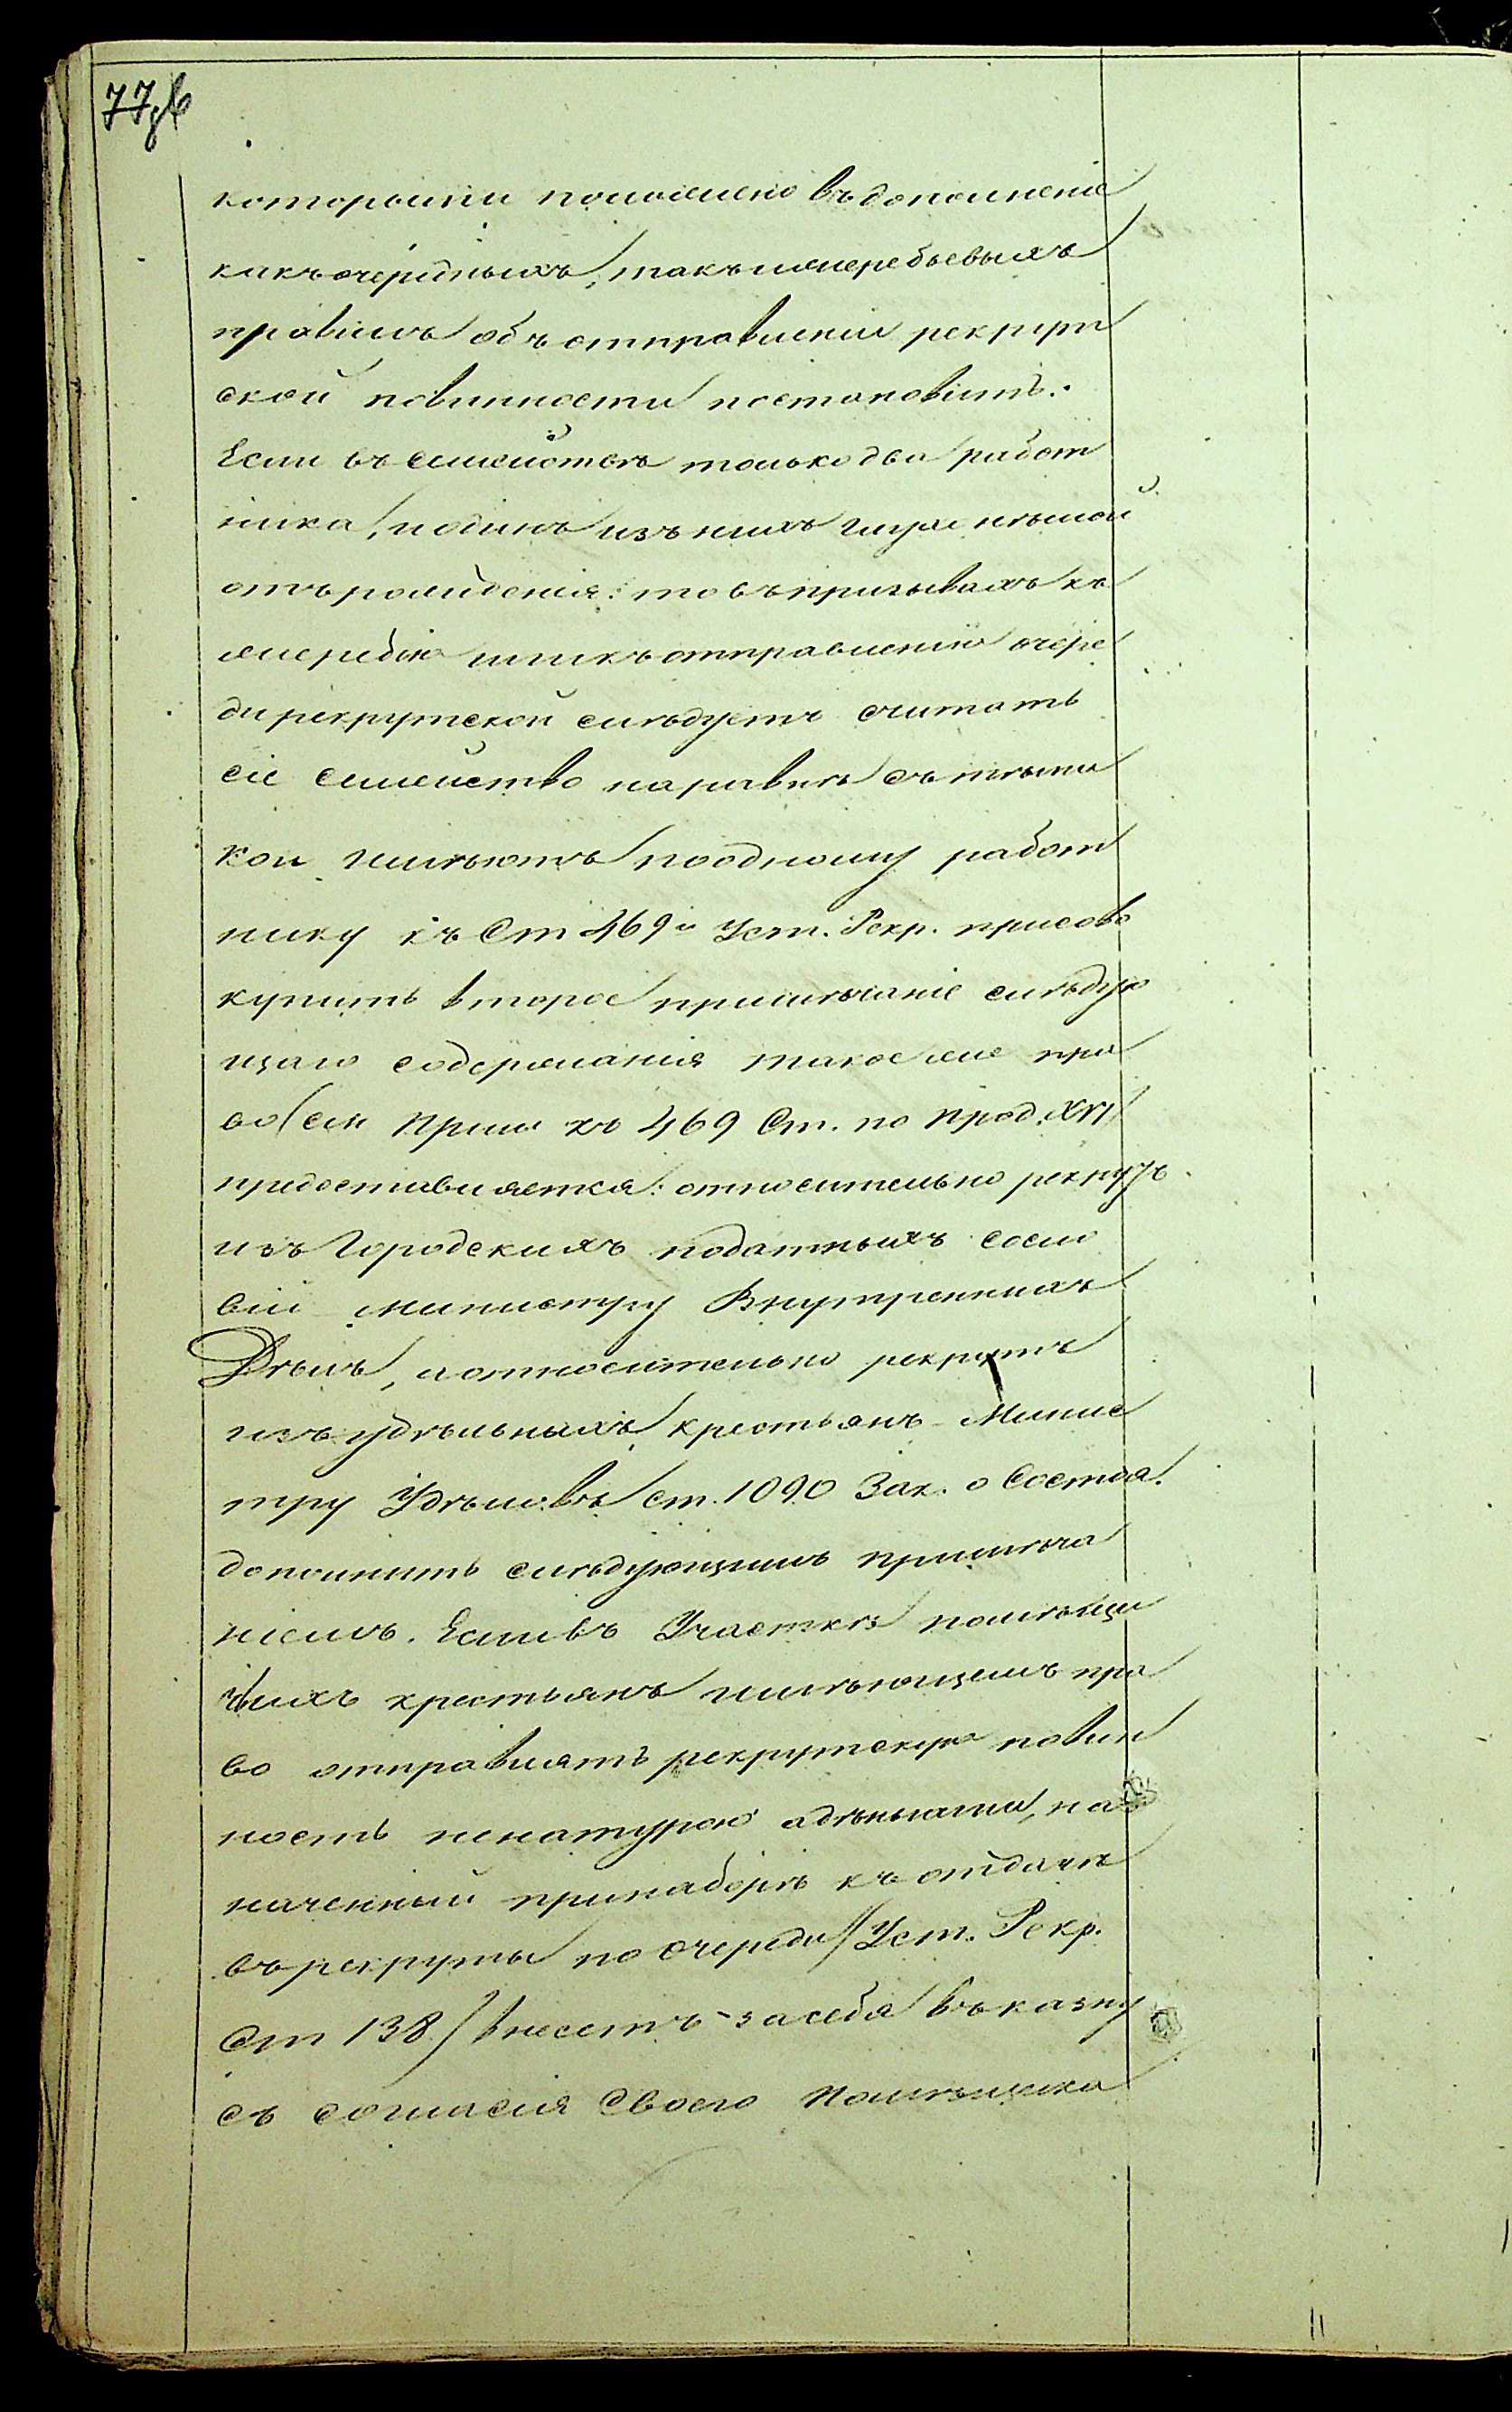 77об
которыми положено въ дополненіе
какъ очередныхъ, такъ и жеребьевыхъ
правилъ объ отправленіи рекрут
ской повинности постановить:
Если въ семействѣ только два работ
ника, и одинъ изъ нихъ глухо нѣмой
отъ рожденія: то въ призывахъ къ
жеребію или къ отправленію очере
ди рекрутской слѣдуетъ считать
сіе семейство наравнѣ съ тѣми
кои имѣютъ по одному работ
нику къ Ст 469й Уст. Рекр. присово
купить второе примѣчаніе слѣдую
щаго содержанія такое же пра
во (см Прим къ 469 Ст. по Прод. XVI
предоставляется: относительно рекрутъ
изъ Городскихъ податныхъ сосло
вій Министру Внутреннихъ
Дѣлъ, а относительно рекрутъ
изъ удѣльныхъ крестьянъ Минис
тру Удѣловъ Ст. 1090 Зак. о Состоя.
дополнить слѣдующимъ примѣча
ніемъ. Если въ Участкѣ помѣщи
чьихъ крестьянъ имѣющемъ пра
во отправлять рекрутскую повин
ность не натурою а деньгами, наз
наченный при наборѣ къ отдачѣ
въ рекруты по очереди (Уст. Рекр.
Ст 138) внесетъ за себя въ казну
съ согласія своего Помѣщика